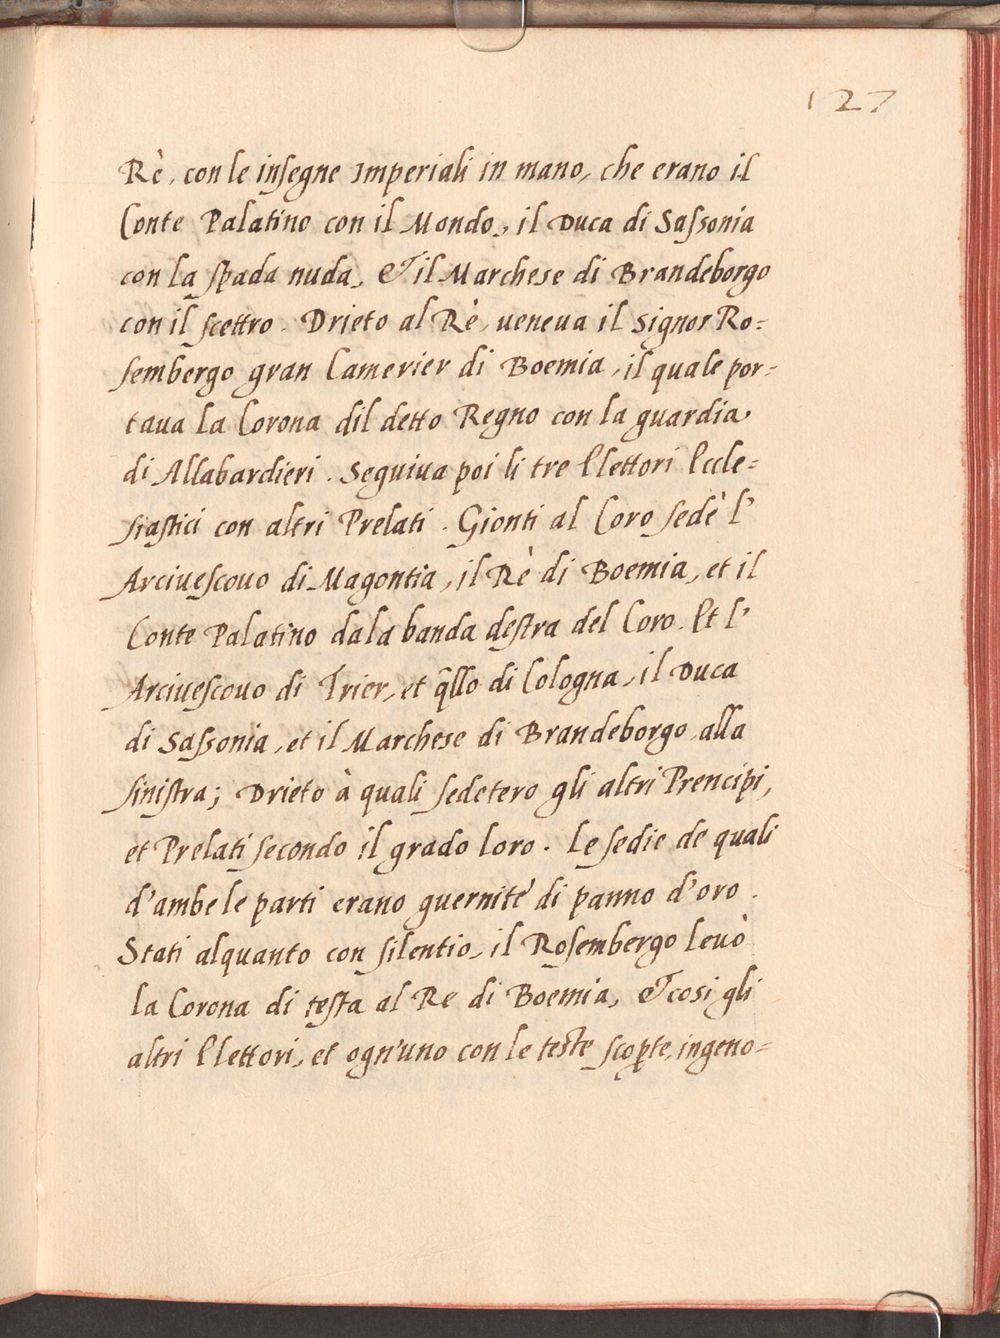 127
Rè, con le insegne Imperiali in mano, che erano il
Conte Palatino con il Mondo, il Duca di Sassonia
con la spada nuda, & il Marchese di Brandeborgo
con il scettro. Drieto al Rè, ueneua il Signor Ro=
sembergo gran Camerier di Boemia, il quale por=
taua la Corona dil detto Regno con la guardia
di Allabardieri. Seguiua poi li tre Elettori Eccle=
siastici con altri Prelati. Gionti al Coro sedè l'
Arciuescouo di Magontia, il Rè di Boemia, et il
Conte Palatino da la banda destra del Coro. Et l'
Arciuescouo di Trier, et q̃llo di Cologna, il Duca
di Sassonia, et il Marchese di Brandeborgo alla
sinistra; Drieto à quali sedetero gli altri Prencipi,
et Prelati secondo il grado loro. Le sedie de quali
d'ambe le parti erano guernite di panno d'oro.
Stati alquanto con silentio, il Rosembergo leuò
la Corona di testa al Re di Boemia, & cosi gli
altri Elettori, et ogn'uno con le teste scop̱te, ingeno=